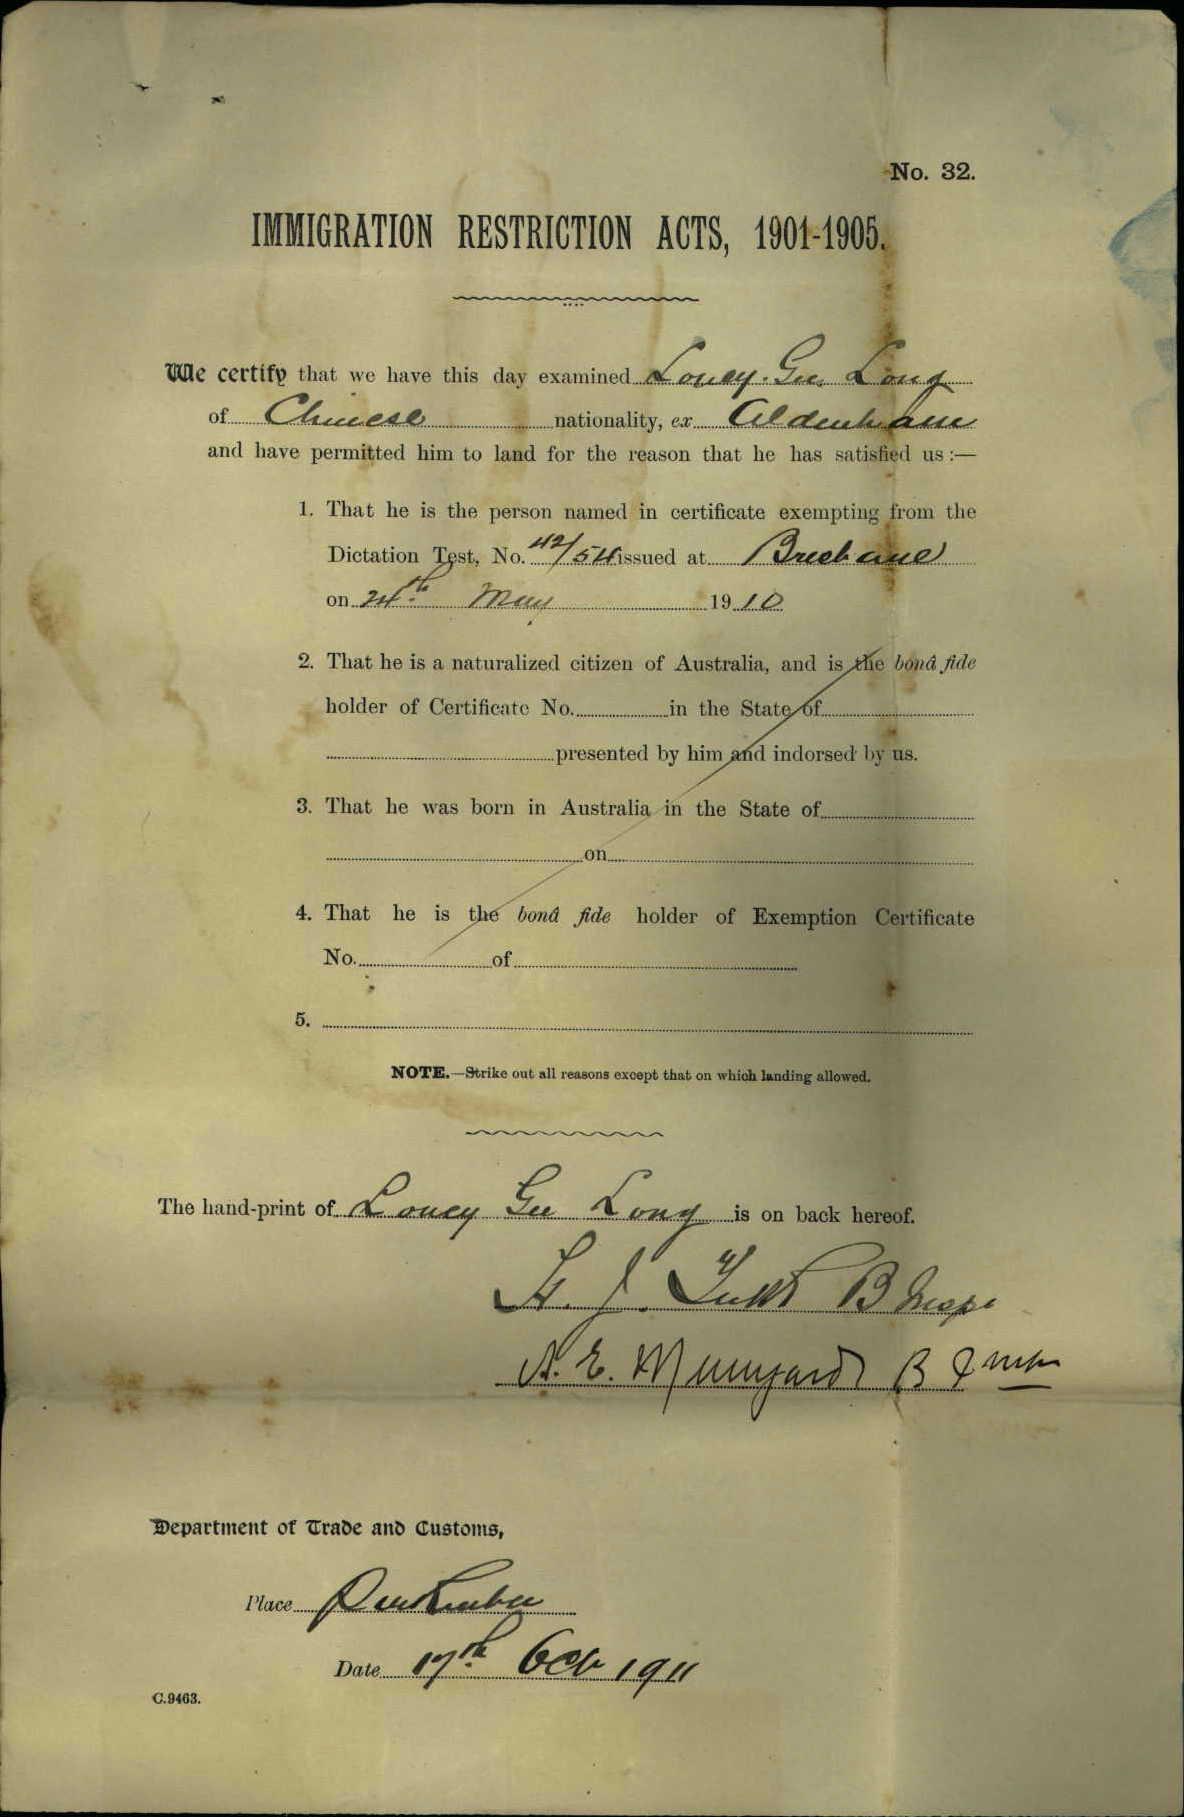 No. 32.
IMMIGRATION RESTRICTION ACTS, 1901-1905.
We certify that we have this day examined Loucy Gee Long
of Chinese nationality, ex Aldenham
and have permitted him to land for the reason that he has satisfied us :—
1. That he is the person named in certificate exempting from the
Dictation Test, No. 42/54 issued at Brisbane
on 24th May 1910
2. That he is a naturalized citizen of Australia, and is the bonâ fide
holder of Certificate No. in the State of
presented by him and indorsed by us.
3. That he was born in Australia in the State of
on
4. That he is the bonâ fide holder of Exemption Certificate
No. of
5.
NOTE.—Strike out all reasons except that on which landing allowed.
The hand-print of Loucy Gee Long is on back hereof.
J. B Inspr
A. E. B
Department of Trade and Customs,
Place
Date 17th Oct 1911
C.9463.